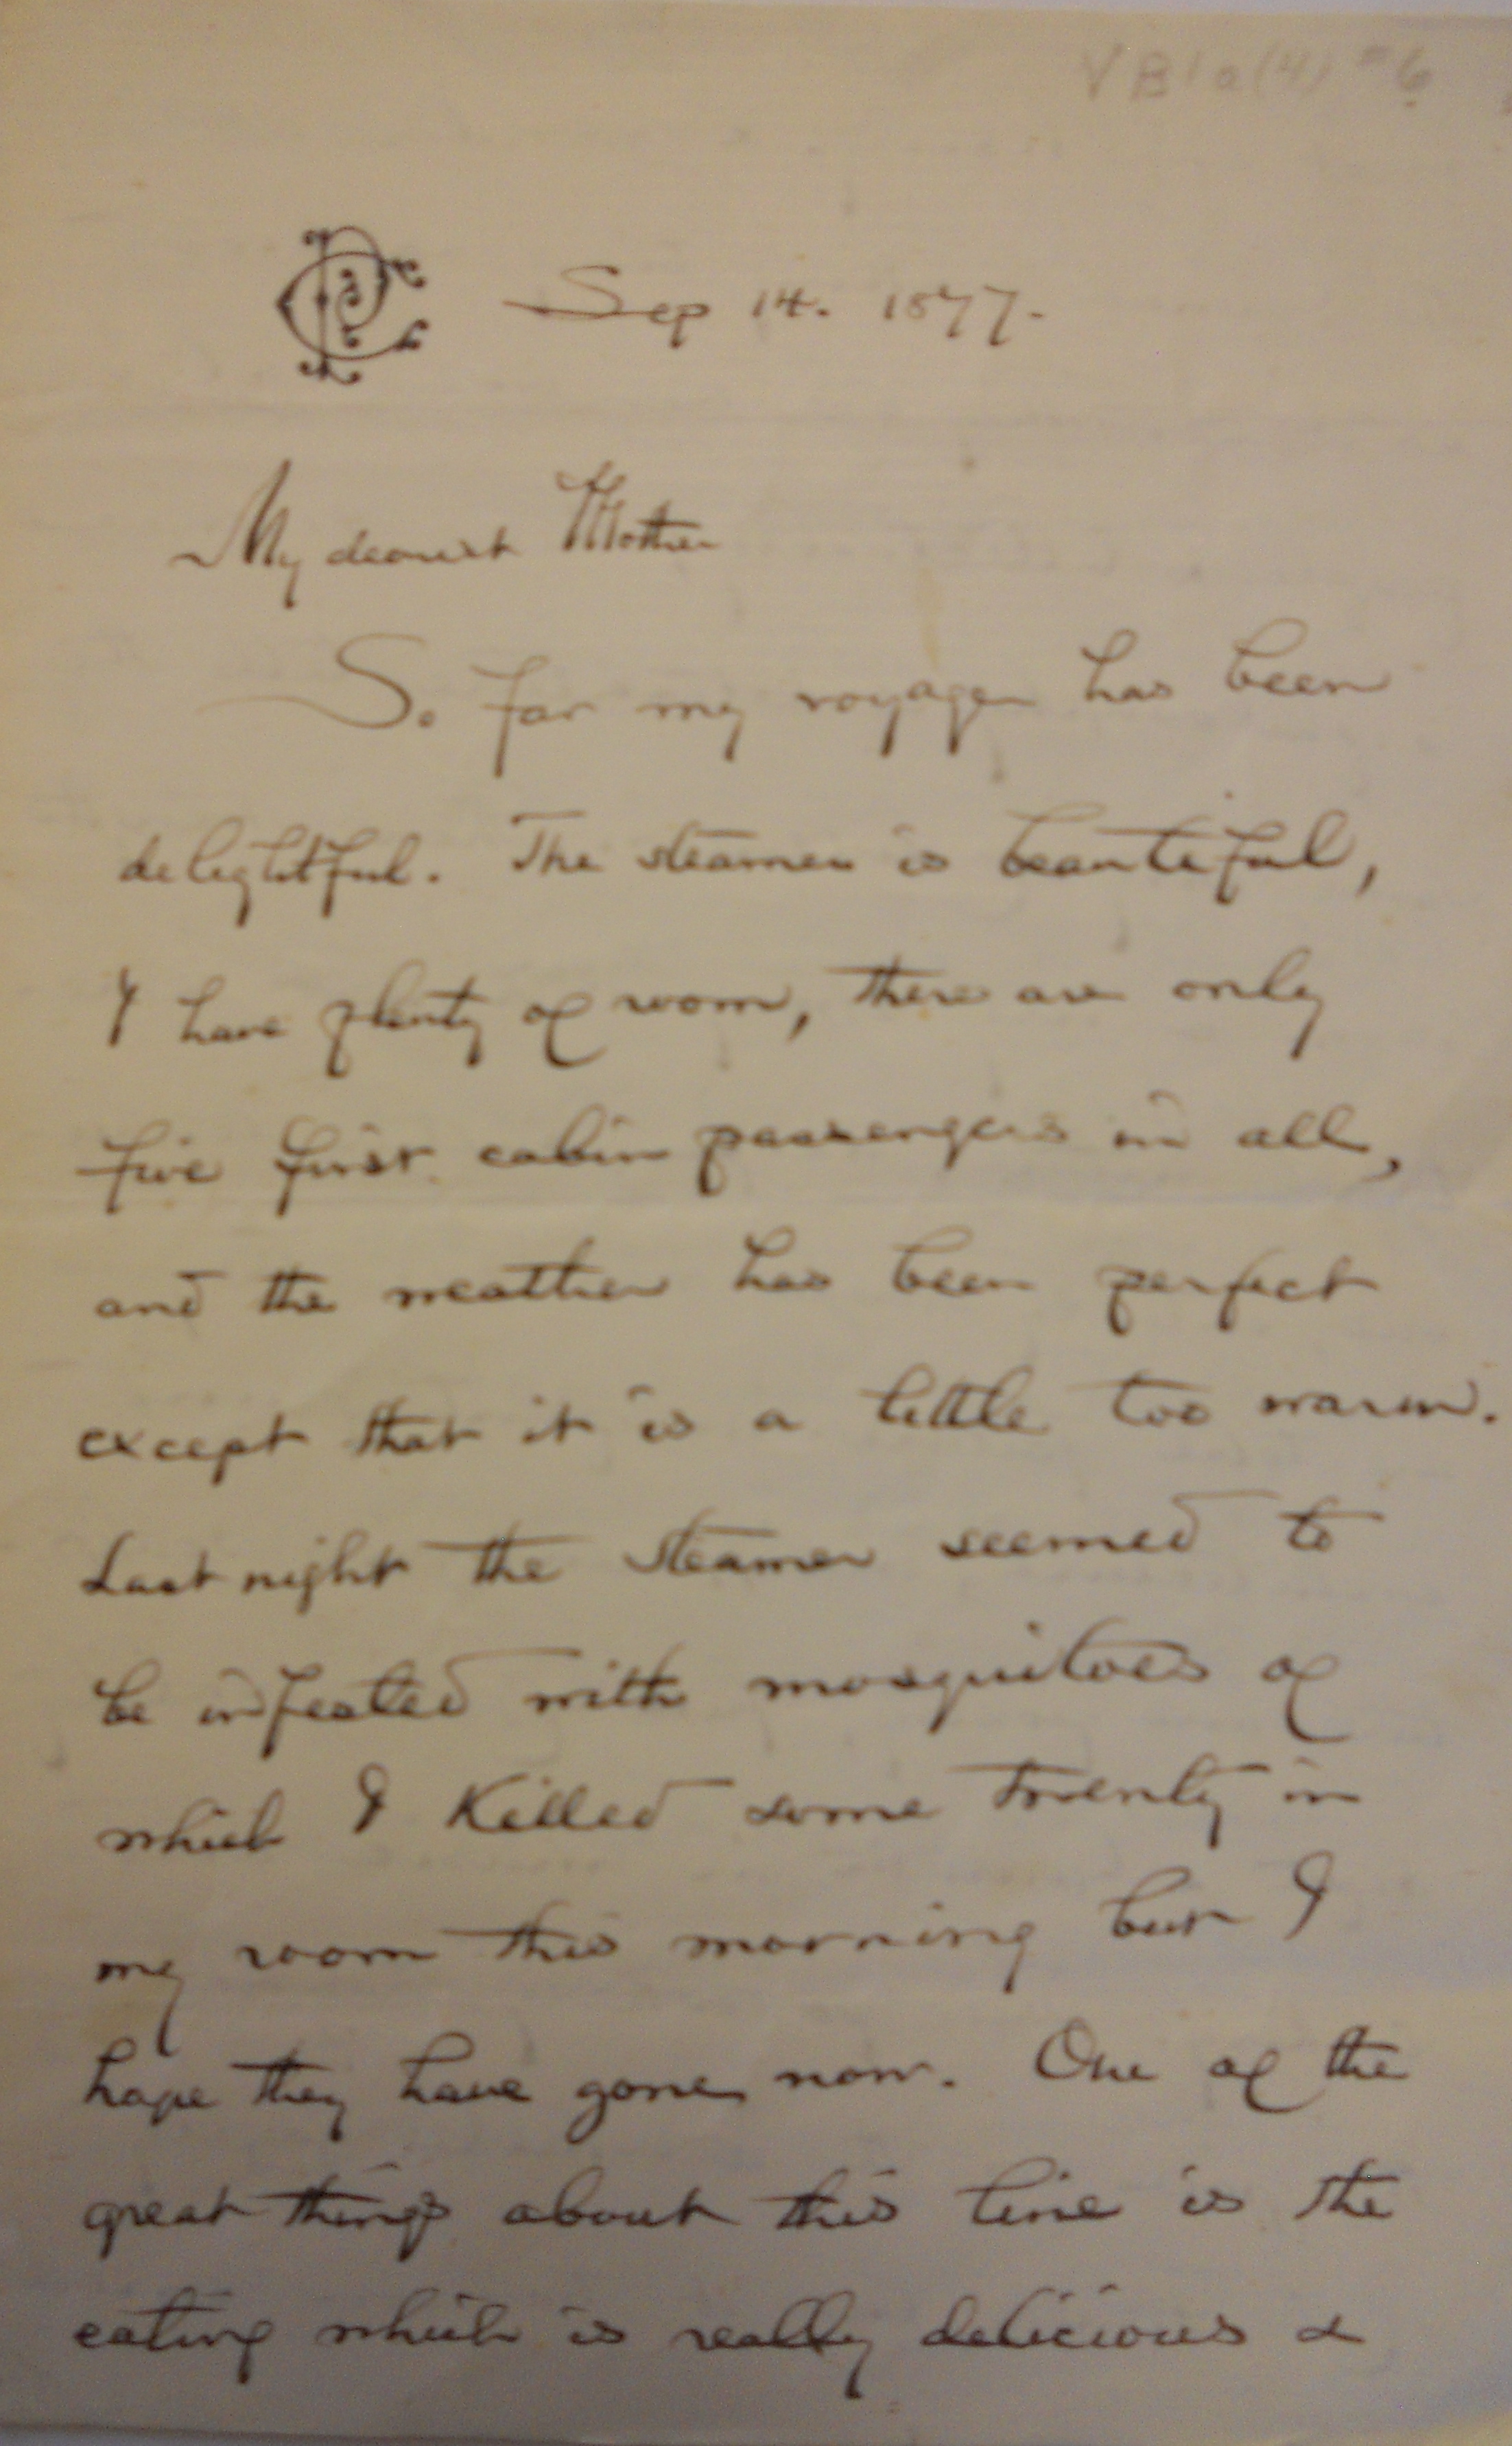 VB1a(4) #6
Sep 14. 1877.
My dearest Mother
So far my voyage has been
delightful. The steamer is beautiful,
I have plenty of room, there are only
five first cabin passengers in all,
and the weather has been perfect
except that it is a little too warm.
Last night the steamer seemed to
be infested with mosquitoes of
which I killed some twenty in
my room this morning but I
hope they have gone now. One of the
great things about this line is the
eating which is really delicious &